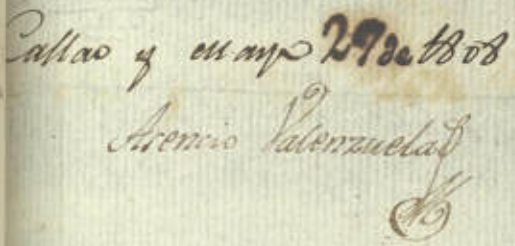 Callao y mayo 27 de 1808
Asencio Valenzuela